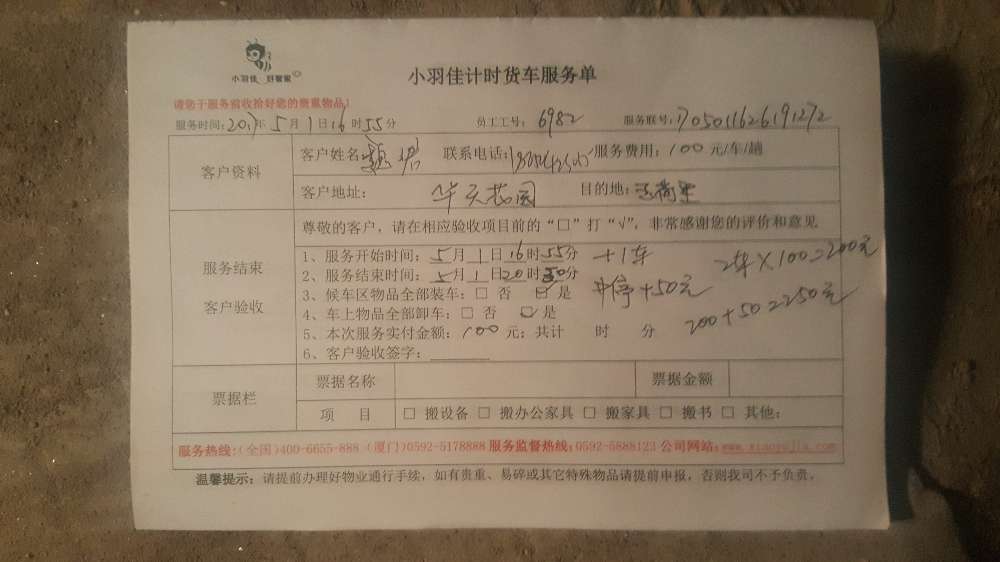 小羽佳 好管家
小羽佳计时货车服务单
请您于服务前收拾好您的贵重物品!
服务时间:2017年5月1日16时55分 员工工号:6982 服务联号:1705011626191272
客户资料
客户姓名: 联系电话: 服务费用:100元/车/趟
客户地址:华天花园 目的地:
尊敬的客户,请在相应验收项目前的“□”打“√”,非常感谢您的评价和意见
服务结束
客户验收
1、服务开始时间:5月1日16时55分 +1车
2、服务结束时间:5月1日20时30分
3、候车区物品全部装车:□ 否 □ 是
4、车上物品全部卸车:□ 否 □ 是
5、本次服务实付金额:100元;共计 时 分
6、客户验收签字:
中停+50元
2车×100=200元
200+50=250元
票据栏
票据名称 票据金额
项 目 □ 搬设备 □ 搬办公家具 □ 搬家具 □ 搬书 □ 其他:
服务热线:(全国)400-6655-888 (厦门)0592-5178888 服务监督热线:0592-5888123 公司网站:www.xiaoyujia.com
温馨提示:请提前办理好物业通行手续,如有贵重、易碎或其它特殊物品请提前申报,否则我司不予负责。